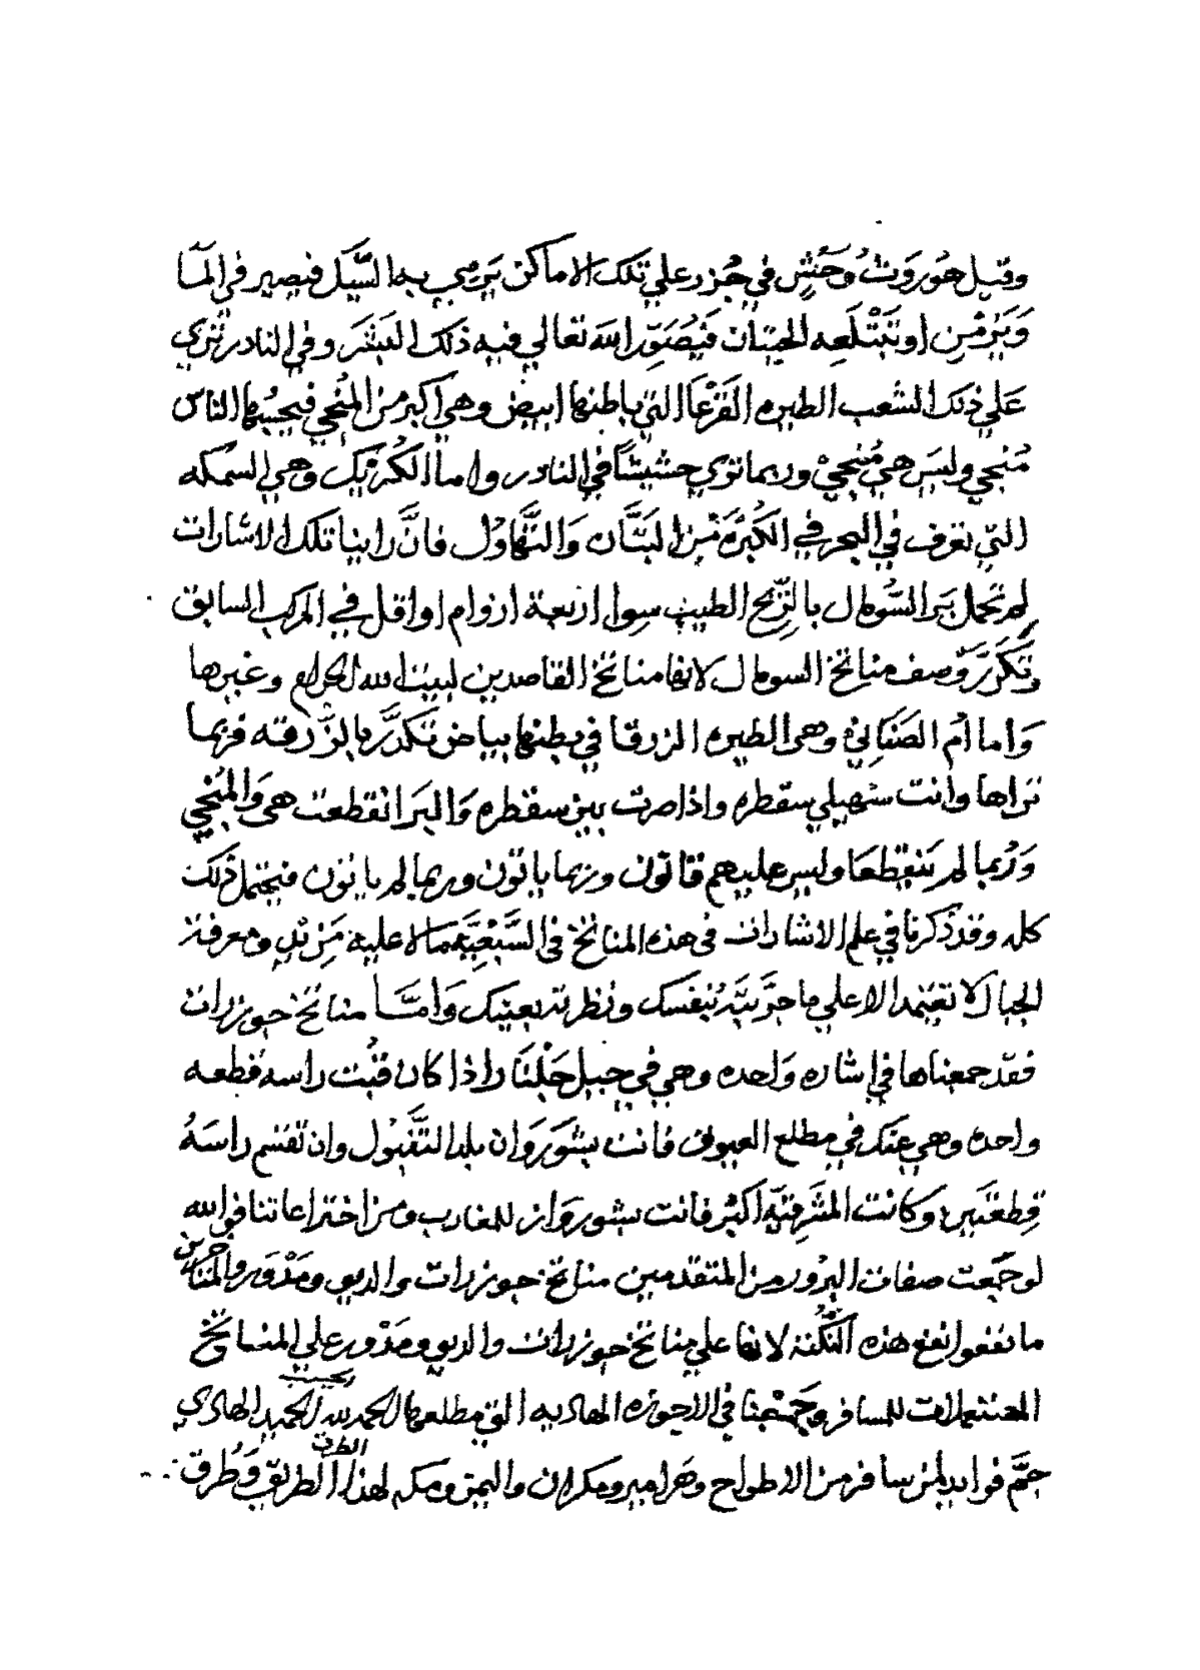 وقيل هو روث وحش في جزر علي تلك الاماكن يرمي بها السيل فيصير في المآ
ويزمن او تبتلعه الحيتان فيصور الله تعالي فيه ذلك العنبر وفي النادر تري
علي ذلك الشعب الطيره القرعا التي باطنها ابيض وهي اكبر من المنجي فيحسبها الناس
منجي وليس هي منجي وربما تري حشيشاً في النادر واما الكرتيك وهي السمكه
التي تعرف في البحر في الكبره من اللبتان والتهاول فانَّ راينا تلك الاشارات
لم تحمل بر السومال بالريح الطيب سوا اربعة ازوام او اقل في المركب السابق
وتكرر وصف مناتخ السومال لانها مناتخ القاصدين لبيت الله الحرام وغيرها
واما ام الصناني وهي الطيره الزرقا في بطنها بياض تكدر بالزرقه فربما
تراها وانت سهيلي سقطره واذا صرت بين سقطره والبر انقطعت هي والمنجي
وربما لم تنقطعا وليس عليهم قانون وربما ياتون وربما لم ياتون فيحتمل ذلك
كله وقد ذكرنا في علم الاشارات في هذه المناتخ في السبعيه مما لا عليه مزيد ومعرفة
الجبال لا تعتمد الا علي ما جربته بنفسك ونظرته بعينك وامَّا مناتخ جوزرات
فقد جمعناها في اشاره واحده وهي في جبل جلنا واذا كان قبت راسه قطعه
واحده وهي عنك في مطلع العيوق فانت بشوروان بلد التنبول وان تقسم راسه
قطعتين وكانت المشرقيه اكبر فانت بشوروان للمغارب ومن اختراعاتنا فوالله
لو جمعت صفات البرور من المتقدمين مناتخ جوزرات والديو ومدور والمناتخ
ما نفعوا نفع هذه النكتة لانها علي مناتخ جوزرات والديو ومدور علي المناتخ
المستعملات للمسافر وجمعنا في الارجوزه الهاديه التي مطلعها الحمد لله الحميد الهادي
جمَّ فوايد لمن سافر من الاطواح وهراميز ومكران واليمن ومكه لهذا الطريق وطرق